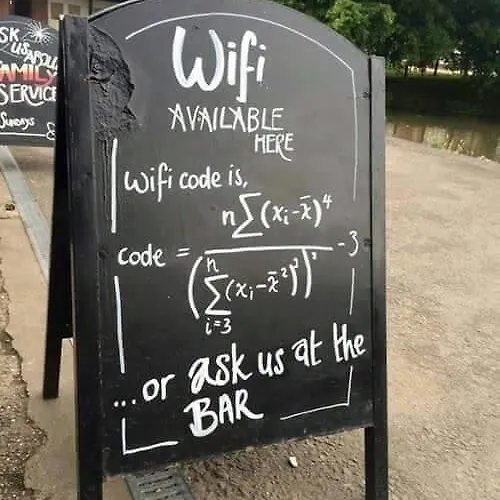 SK
US ABOUT
FAMILY
SERVICE
Sundays
Wifi
AVAILABLE
HERE
Wifi code is,
code = n∑(xᵢ-x̄)⁴ / (∑ⁿᵢ₌₃(xᵢ-x̄²)²)² - 3
...or ask us at the
BAR